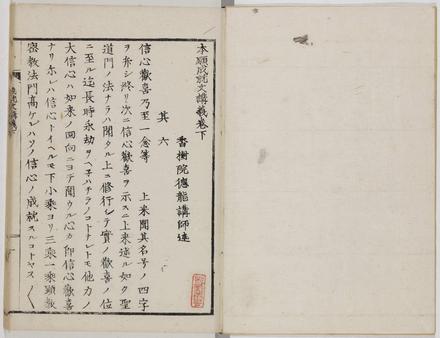 本願成就文講義巻下
香樹院德龍講師述
其六
信心歡喜乃至一念等 上来聞其名号ノ四字
ヲ弁シ終リ次ニ信心歡喜ヲ示スニ上来述ル如ク聖
道門ノ法ナラハ聞タル上ニ修行シテ實ノ歡喜ノ位
ニ至ル迄長時永劫ヲヘネハナラヌコトナレトモ他力ノ
大信心ハ如来ノ回向ニヨテ聞ウル心カ即信心歡喜
ナリホレハ信心トイヘルモ下小乗ヨリ三乗一乗顕教
密教法門高ケレハソノ信心ノ成就スルコトヤス〱